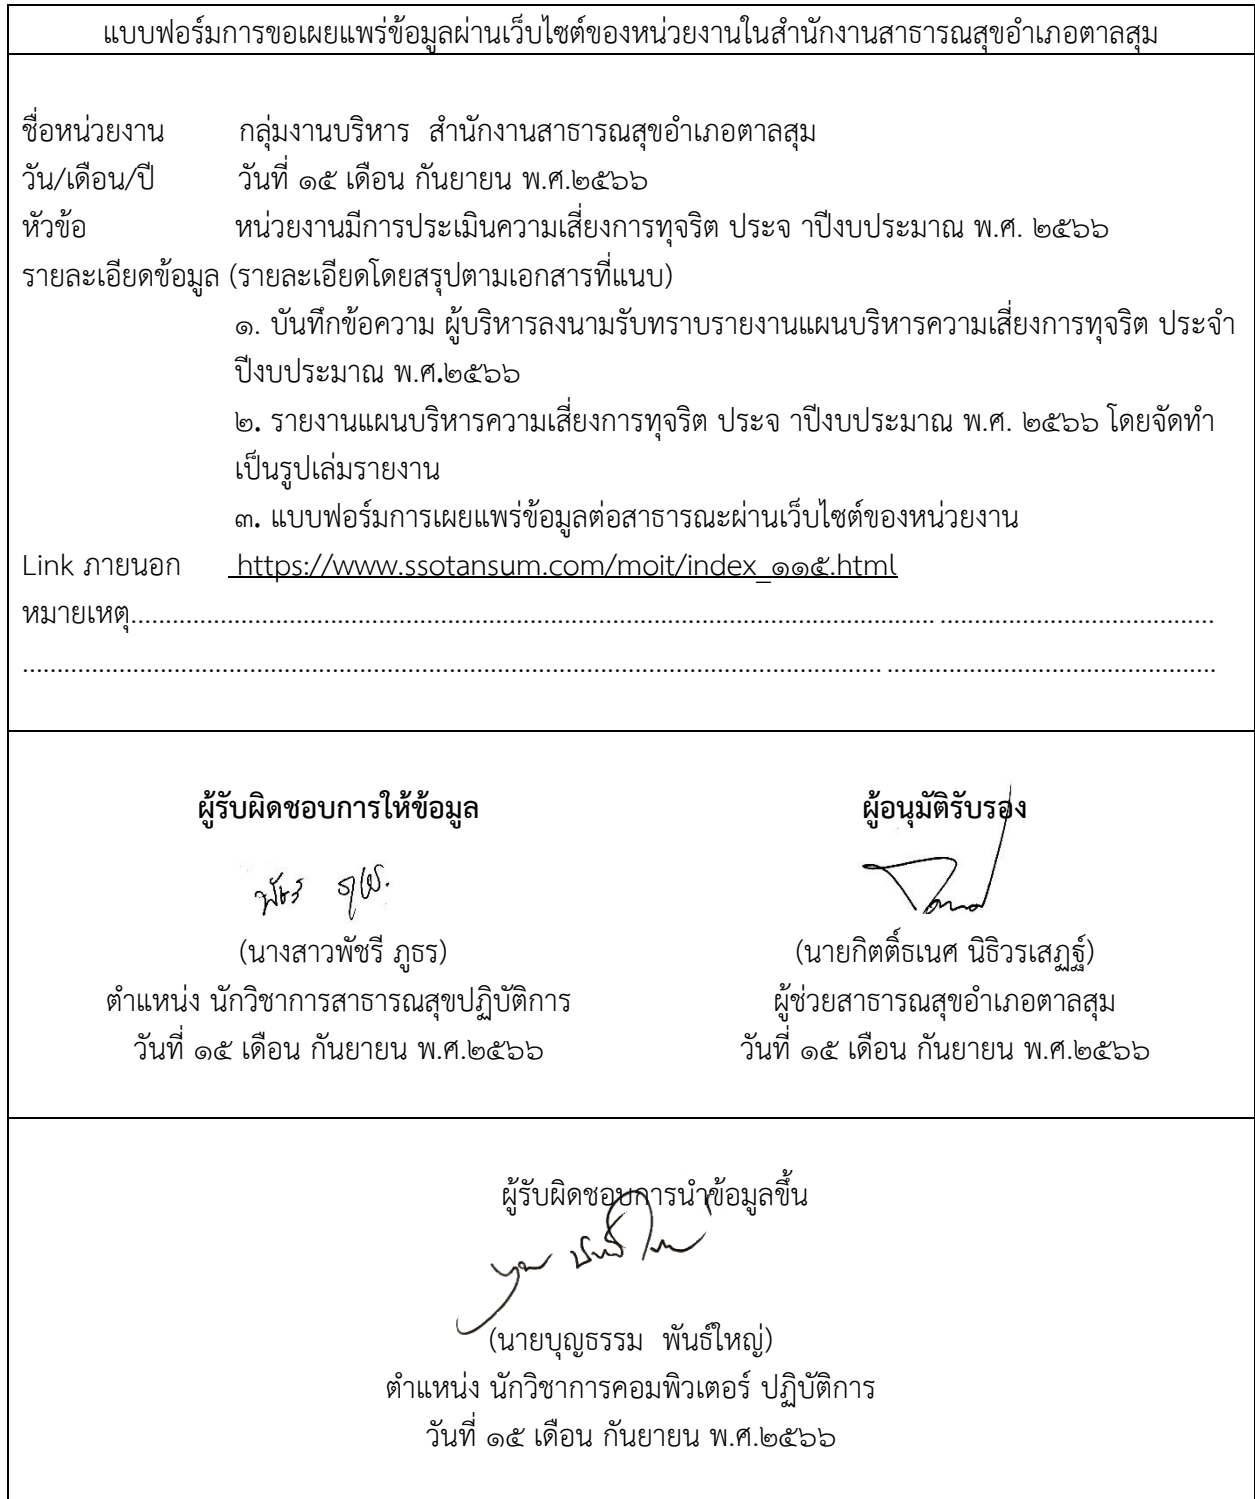 แบบฟอร์มการขอเผยแพร่ข้อมูลผ่านเว็บไซต์ของหน่วยงานในสำนักงานสาธารณสุขอำเภอตาลสุม
ชื่อหน่วยงาน กลุ่มงานบริหาร สำนักงานสาธารณสุขอำเภอตาลสุม
วัน/เดือน/ปี วันที่ ๑๕ เดือน กันยายน พ.ศ.๒๕๖๖
หัวข้อ หน่วยงานมีการประเมินความเสี่ยงการทุจริต ประจ าปีงบประมาณ พ.ศ. ๒๕๖๖
รายละเอียดข้อมูล (รายละเอียดโดยสรุปตามเอกสารที่แนบ)
๑. บันทึกข้อความ ผู้บริหารลงนามรับทราบรายงานแผนบริหารความเสี่ยงการทุจริต ประจำ
ปีงบประมาณ พ.ศ.๒๕๖๖
๒. รายงานแผนบริหารความเสี่ยงการทุจริต ประจ าปีงบประมาณ พ.ศ. ๒๕๖๖ โดยจัดทำ
เป็นรูปเล่มรายงาน
๓. แบบฟอร์มการเผยแพร่ข้อมูลต่อสาธารณะผ่านเว็บไซต์ของหน่วยงาน
Link ภายนอก https://www.ssotansum.com/moit/index_๑๑๕.html
หมายเหตุ..........................................................................................................................
..........................................................................................................................
ผู้รับผิดชอบการให้ข้อมูล ผู้อนุมัติรับรอง
(นางสาวพัชรี ภูธร) (นายกิตติ์ธเนศ นิธิวรเสฏฐ์)
ตำแหน่ง นักวิชาการสาธารณสุขปฏิบัติการ ผู้ช่วยสาธารณสุขอำเภอตาลสุม
วันที่ ๑๕ เดือน กันยายน พ.ศ.๒๕๖๖ วันที่ ๑๕ เดือน กันยายน พ.ศ.๒๕๖๖
ผู้รับผิดชอบการนำข้อมูลขึ้น
(นายบุญธรรม พันธ์ใหญ่)
ตำแหน่ง นักวิชาการคอมพิวเตอร์ ปฏิบัติการ
วันที่ ๑๕ เดือน กันยายน พ.ศ.๒๕๖๖